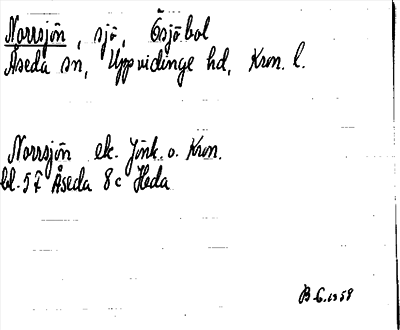 Norrsjön, sjö, Ösjöbol
Åseda sn, Uppvidinge hd, Kron. l.
Norrsjön ek. Jönk. o. Kron.
bl. 57 Åseda 8c Heda